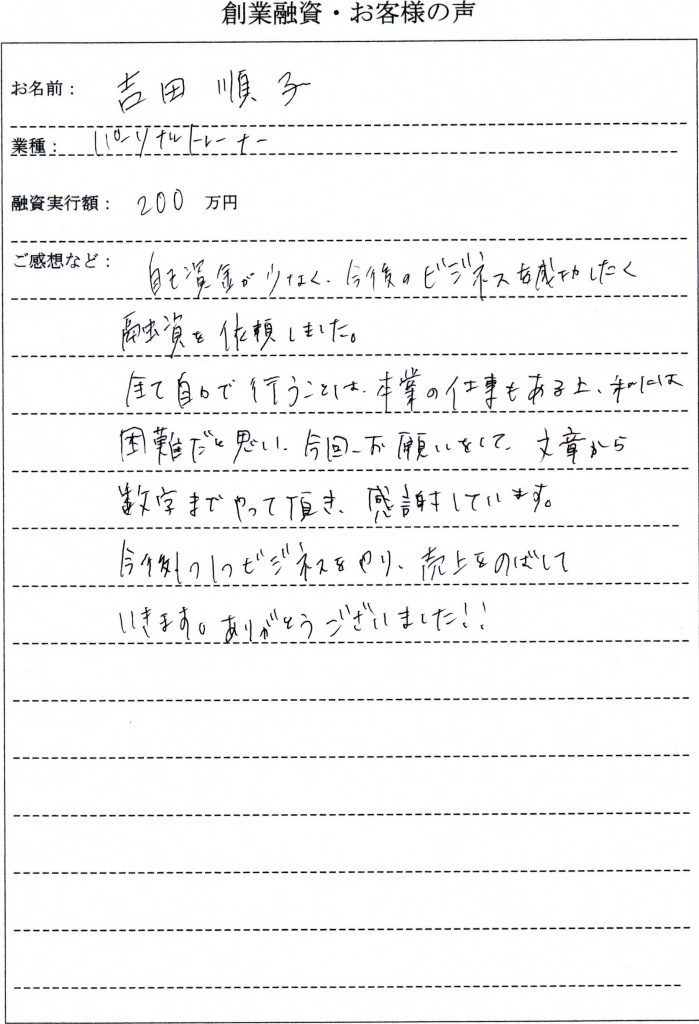 創業融資・お客様の声
お名前： 吉田 順子
業種： パーソナルトレーナー
融資実行額： 200 万円
ご感想など： 自己資金が少なく、今後のビジネスを成功したく
融資を依頼しました。
全て自力で行うことは、本業の仕事もある上、私には
困難だと思い、今回お願いをして、文章から
数字までやって頂き、感謝しています。
今後しっビジネスをやり、売上をのばして
いきます。ありがとうございました!!